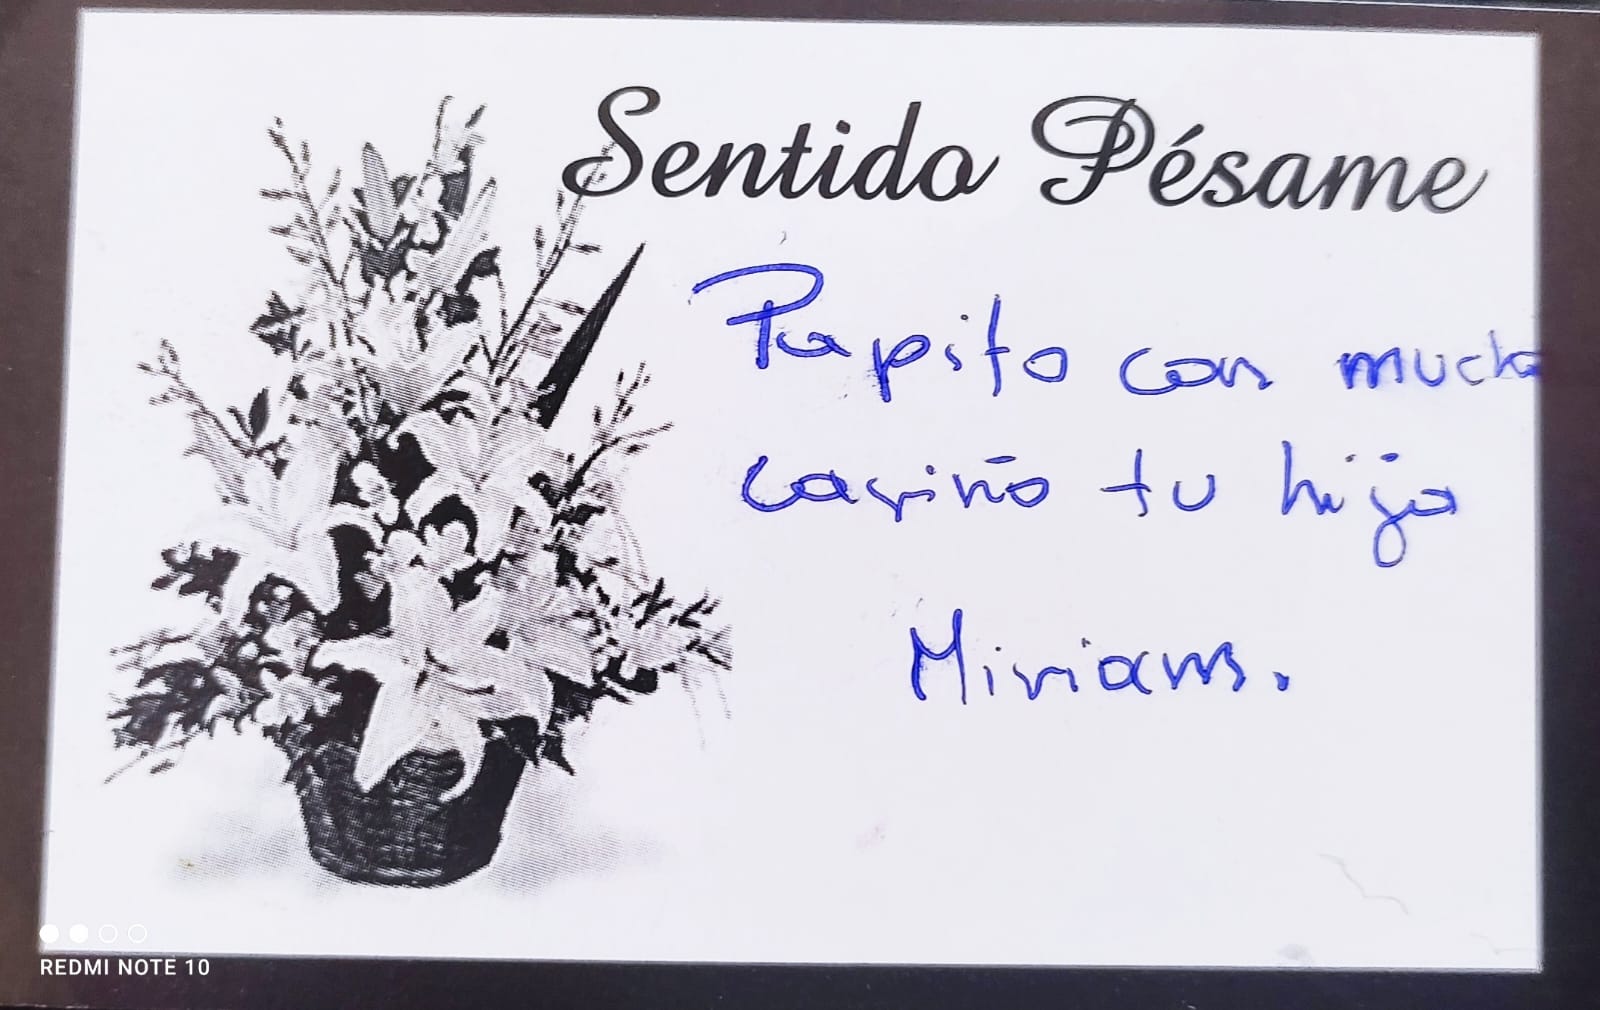 Sentido Pésame
Papito con mucho
cariño tu hija
Miriam.
REDMI NOTE 10